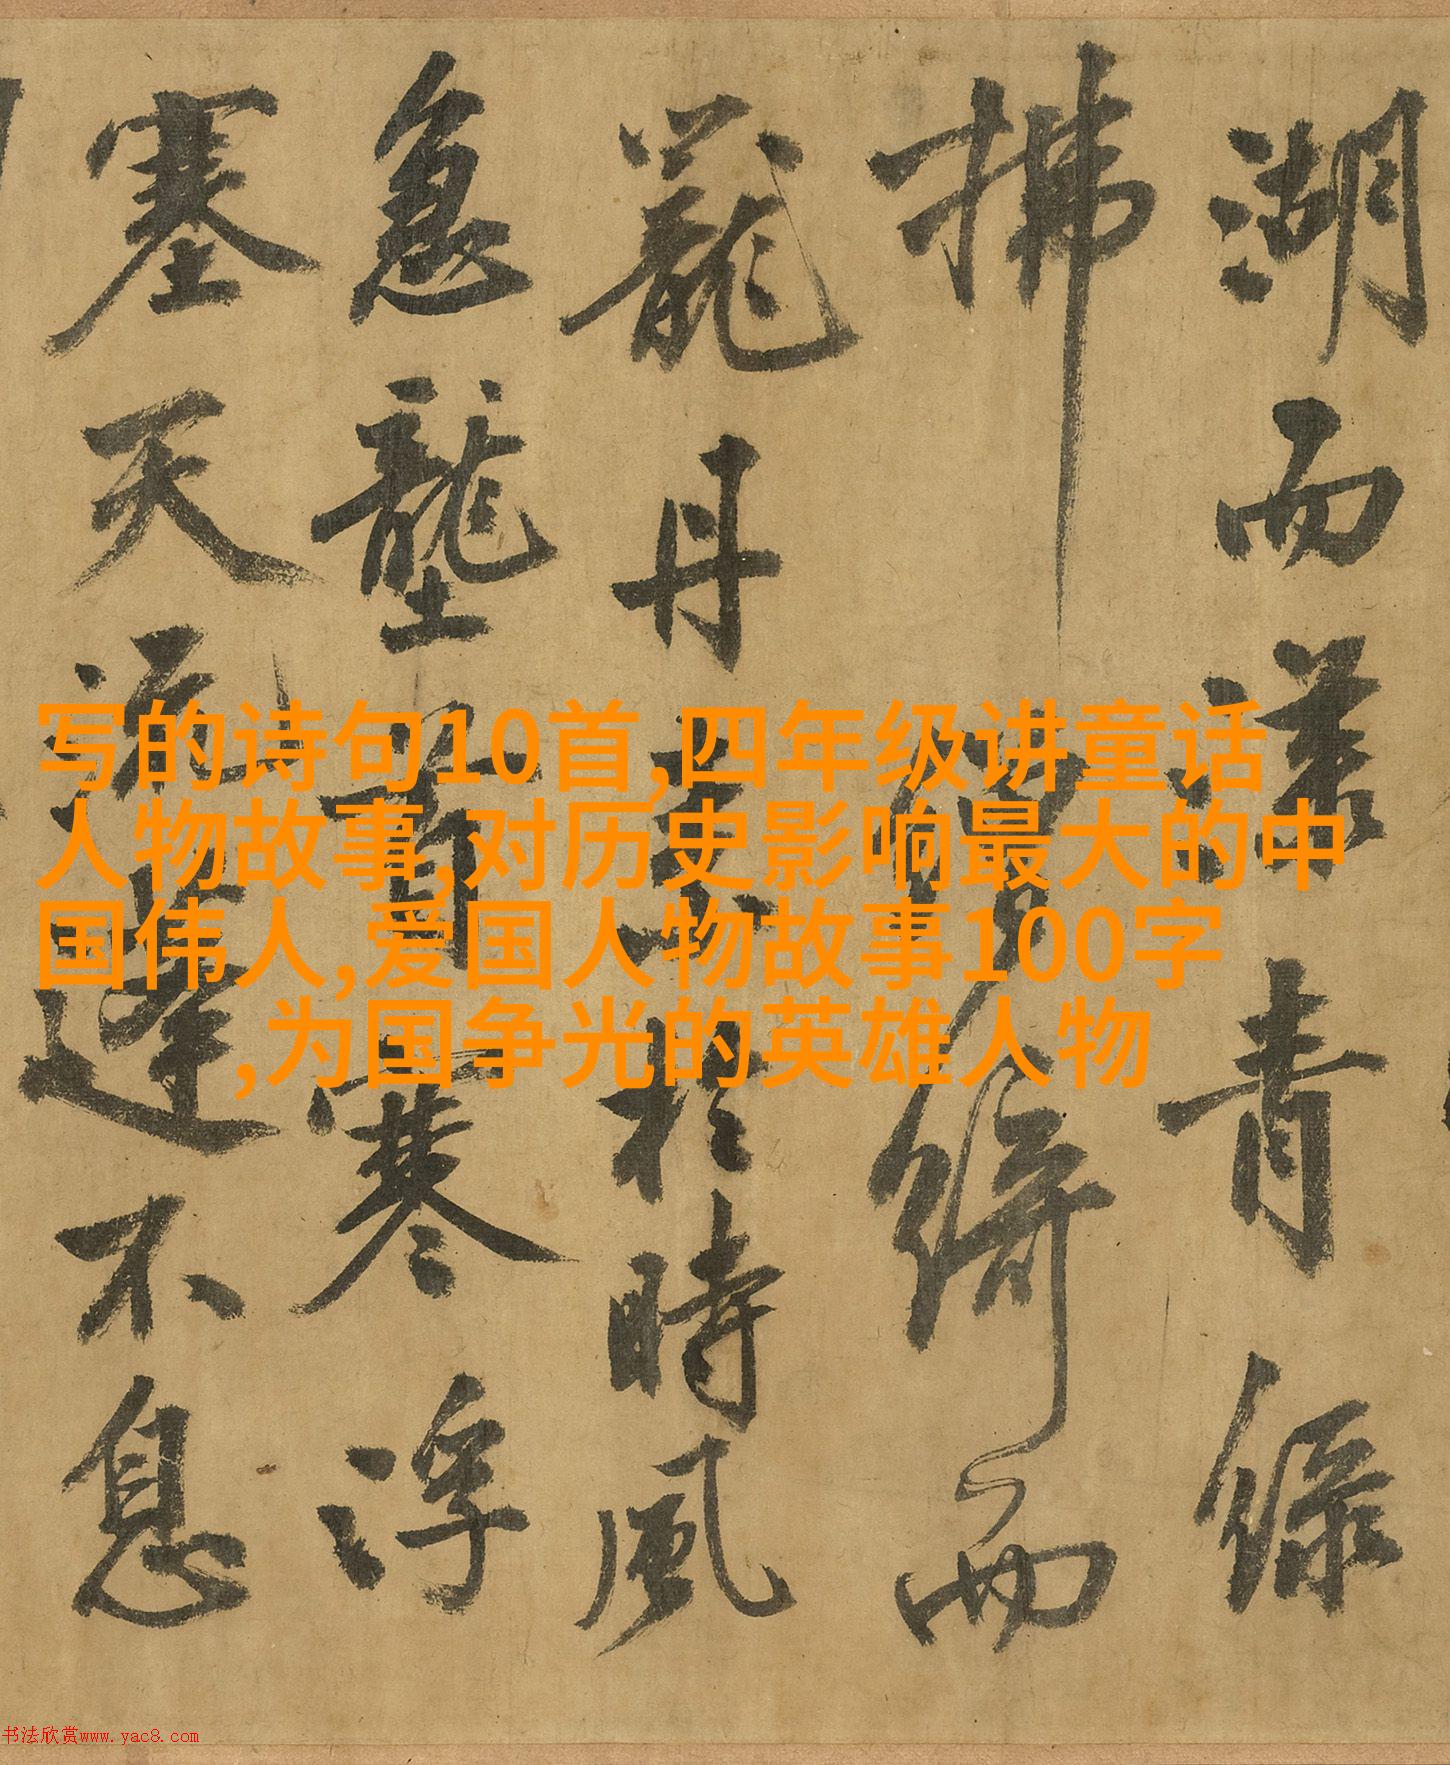 湖而漾青緑
拂綺而
丹於時風
急壟寒浮
塞天不息
写的诗句10首,四年级讲童话
人物故事,对历史影响最大的中
国伟人,爱国人物故事100字
,为国争光的英雄人物
书法欣赏www.yac8.com